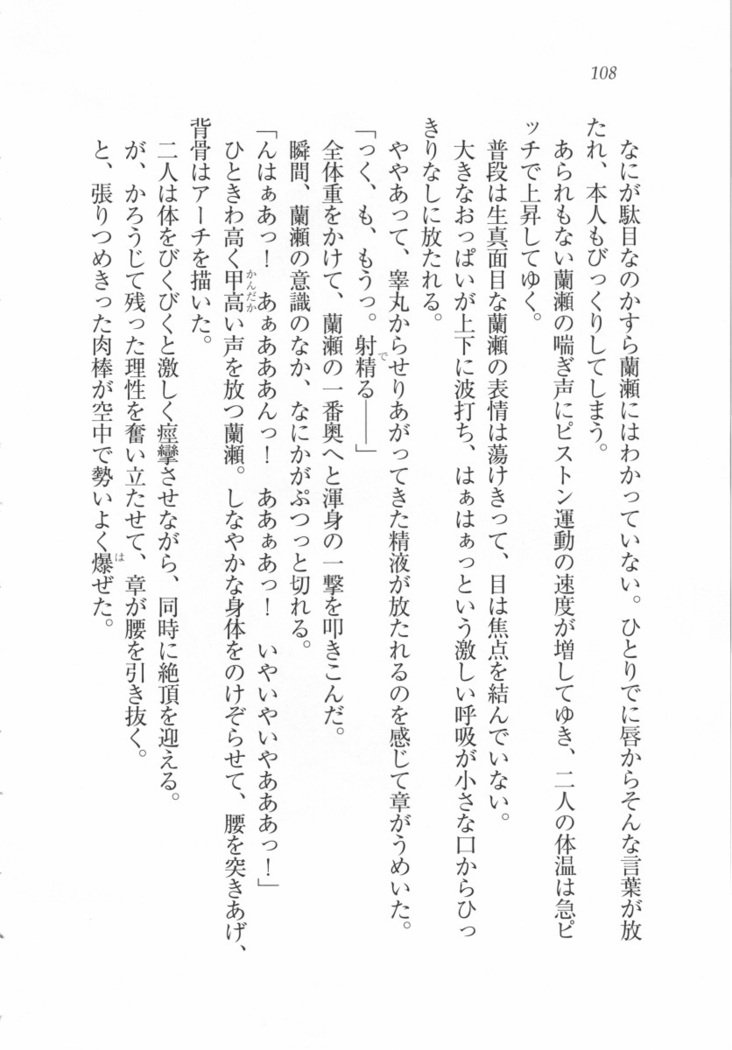 108
なにが駄目なのかすら蘭瀬にはわかっていない。ひとりでに唇からそんな言葉が放
たれ、本人もびっくりしてしまう。
あられもない蘭瀬の喘ぎ声にピストン運動の速度が増してゆき、二人の体温は急ピ
ッチで上昇してゆく。
普段は生真面目な蘭瀬の表情は蕩けきって、目は焦点を結んでいない。
大きなおっぱいが上下に波打ち、はぁはぁっという激しい呼吸が小さな口からひっ
きりなしに放たれる。
ややあって、睾丸からせりあがってきた精液が放たれるのを感じて章がうめいた。
「っく、も、もうっ。射精る――」
全体重をかけて、蘭瀬の一番奥へと渾身の一撃を叩きこんだ。
瞬間、蘭瀬の意識のなか、なにかがぷつっと切れる。
「んはぁあっ！　あぁあああんっ！　ああぁあっ！　いやいやいやあああっ！」
ひときわ高く甲高い声を放つ蘭瀬。しなやかな身体をのけぞらせて、腰を突きあげ、
背骨はアーチを描いた。
二人は体をびくびくと激しく痙攣させながら、同時に絶頂を迎える。
が、かろうじて残った理性を奮い立たせて、章が腰を引き抜く。
と、張りつめきった肉棒が空中で勢いよく爆ぜた。